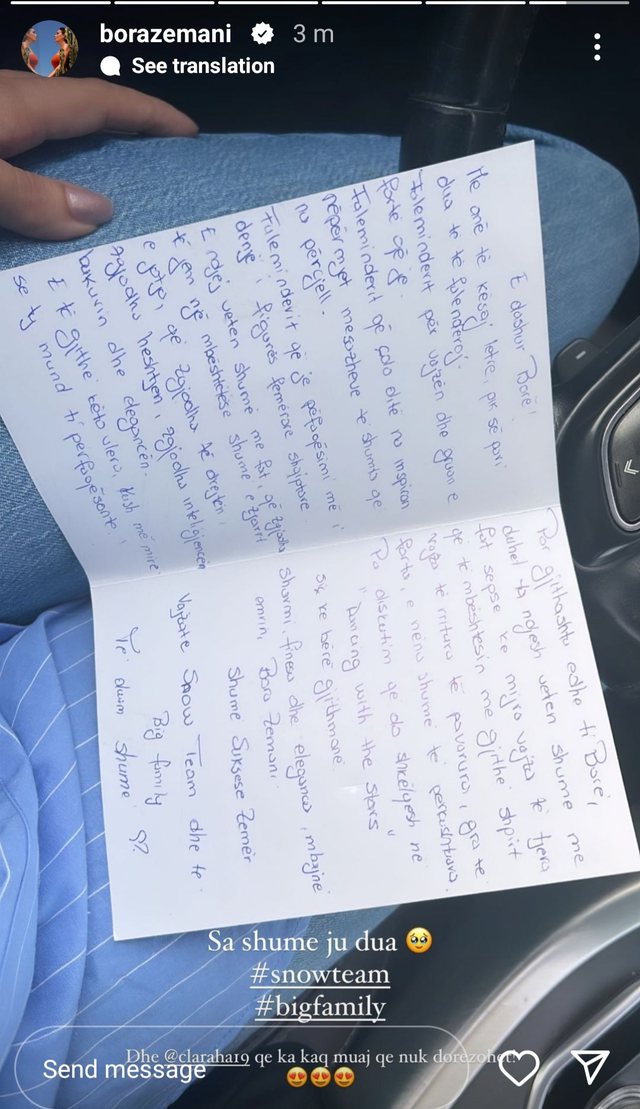 borazemani
3 m
See translation
E dashur Borë,
Me anë të kësaj letre, pr së pari
dua të të falenderoj.
Faleminderit për vajzën dhe gruan e
fortë që je.
Faleminderit që çdo ditë na inspiron
nëpërmjet mesazheve të shumta që
na përcjell.
Faleminderit që je përfaqësimi më i
denjë i figurës femërore shqiptare.
E ndjej veten shumë me fat, që zgjodha
të jem një mbështetëse shumë e zjarrt
e jotja, që zgjodha të drejtën,
zgjodha heshtjen, zgjodha inteligjencën
bukurin dhe elegancën.
E të gjitha këto vlera, kush më mirë
se ty mund ti përfaqësonte.
Por gjithashtu edhe ti Borë,
duhet ta ndjesh veten shume me
fat sepse ke mijra vajza të tjera
që të mbështesin me gjithë shpirt
vajza të rritura të pavarura, gra të
forta, e nëna shume të përkushtuara.
Pa diskutim që do shkëlqesh në
"Dancing with the stars"
siç ke bërë gjithmonë.
sharmi, finesa dhe eleganca, mbajnë
emrin, Bora Zemani.
Shume Suksese Zemër
Vajzate Snow Team dhe të
Big family
Të duam shume
Sa shume ju dua
#snowteam
#bigfamily
Dhe @claraha19 qe ka kaq muaj qe nuk dorëzohet!
Send message